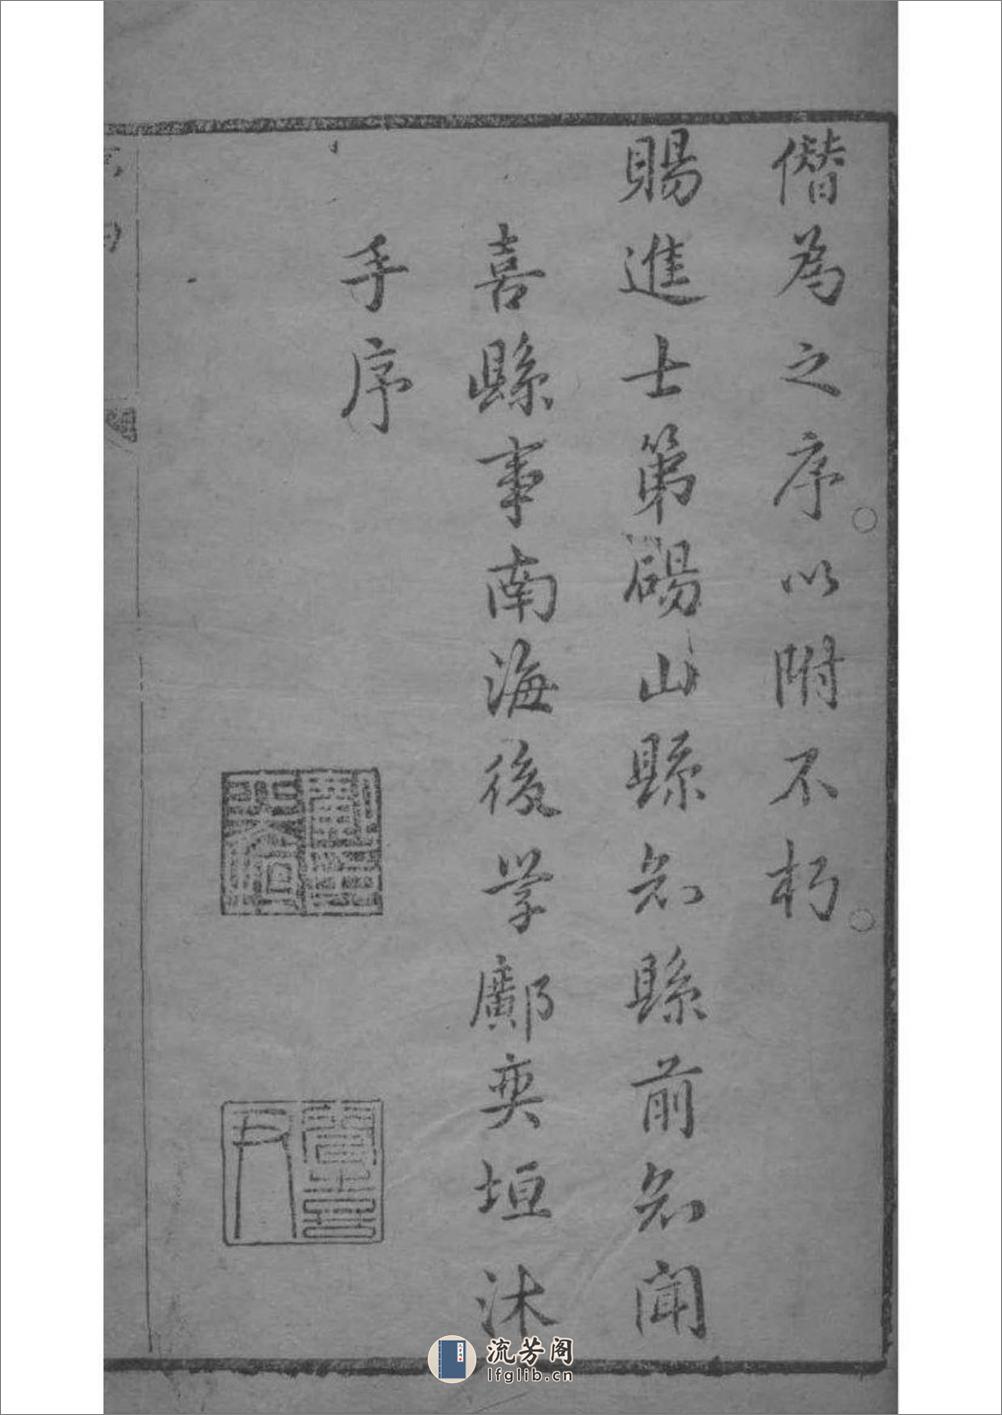 僭為之序以附不朽
賜進士第碭山縣知縣前知聞
喜縣事南海後学鄺奕垣沐
手序
鄺印奕垣
聞喜尹
流芳阁
lfglib.cn